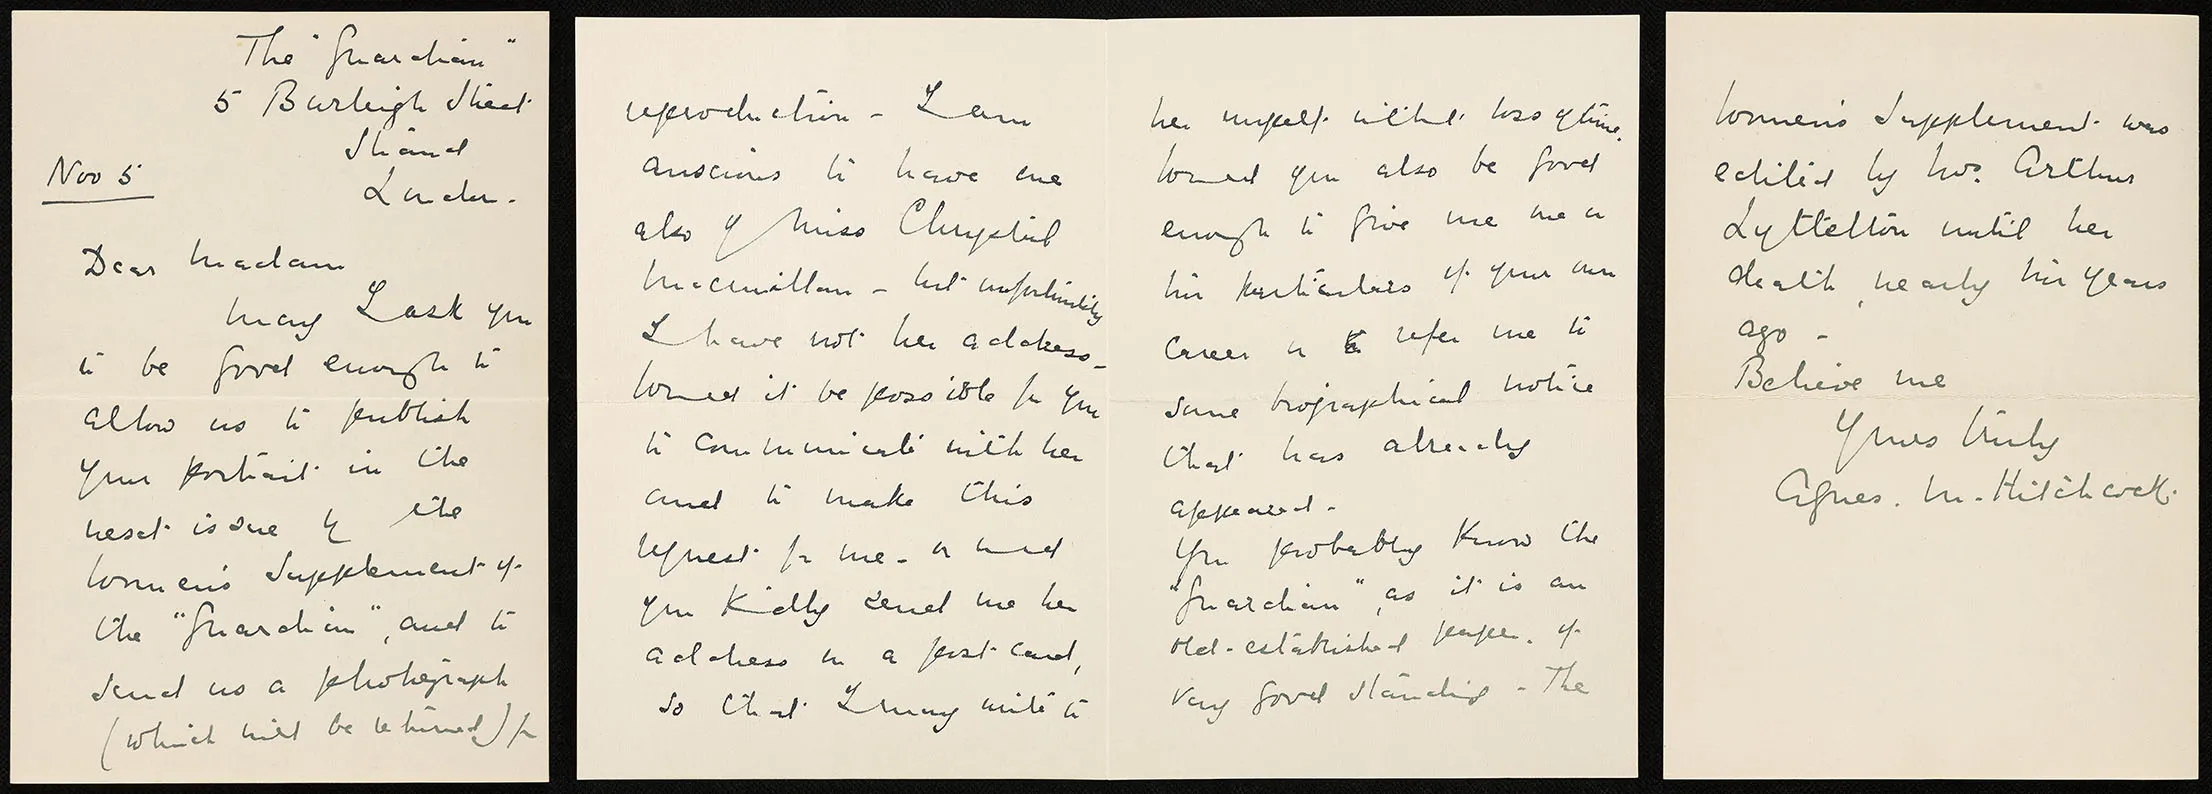 The "Guardian"
5 Burleigh Street
Strand
London.
Nov 5
Dear Madam
May I ask you
to be good enough to
allow us to publish
your portrait in the
next issue of the
Women's Supplement of
the "Guardian", and to
send us a photograph
(which will be returned) for
reproduction - I am
anxious to have one
also of Miss Chrystal
Macmillan - but unfortunately
I have not her address -
Would it be possible for you
to communicate with her
and to make this
request for me - or would
you kindly send me her
address on a post-card,
so that I may write to
her myself without loss of time.
Would you also be good
enough to give me one or
two particulars of your own
career or to refer me to
some biographical notice
that has already
appeared -
You probably know the
"Guardian", as it is an
old-established paper of
very good standing - The
Women's Supplement was
edited by Mrs. Arthur
Lyttelton until her
death, nearly two years
ago -
Believe me
Yours truly
Agnes. M. Hitchcock.